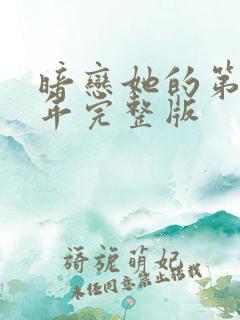 暗戀她的第
年完整版
旖旎萌妃
未经同意禁止转载